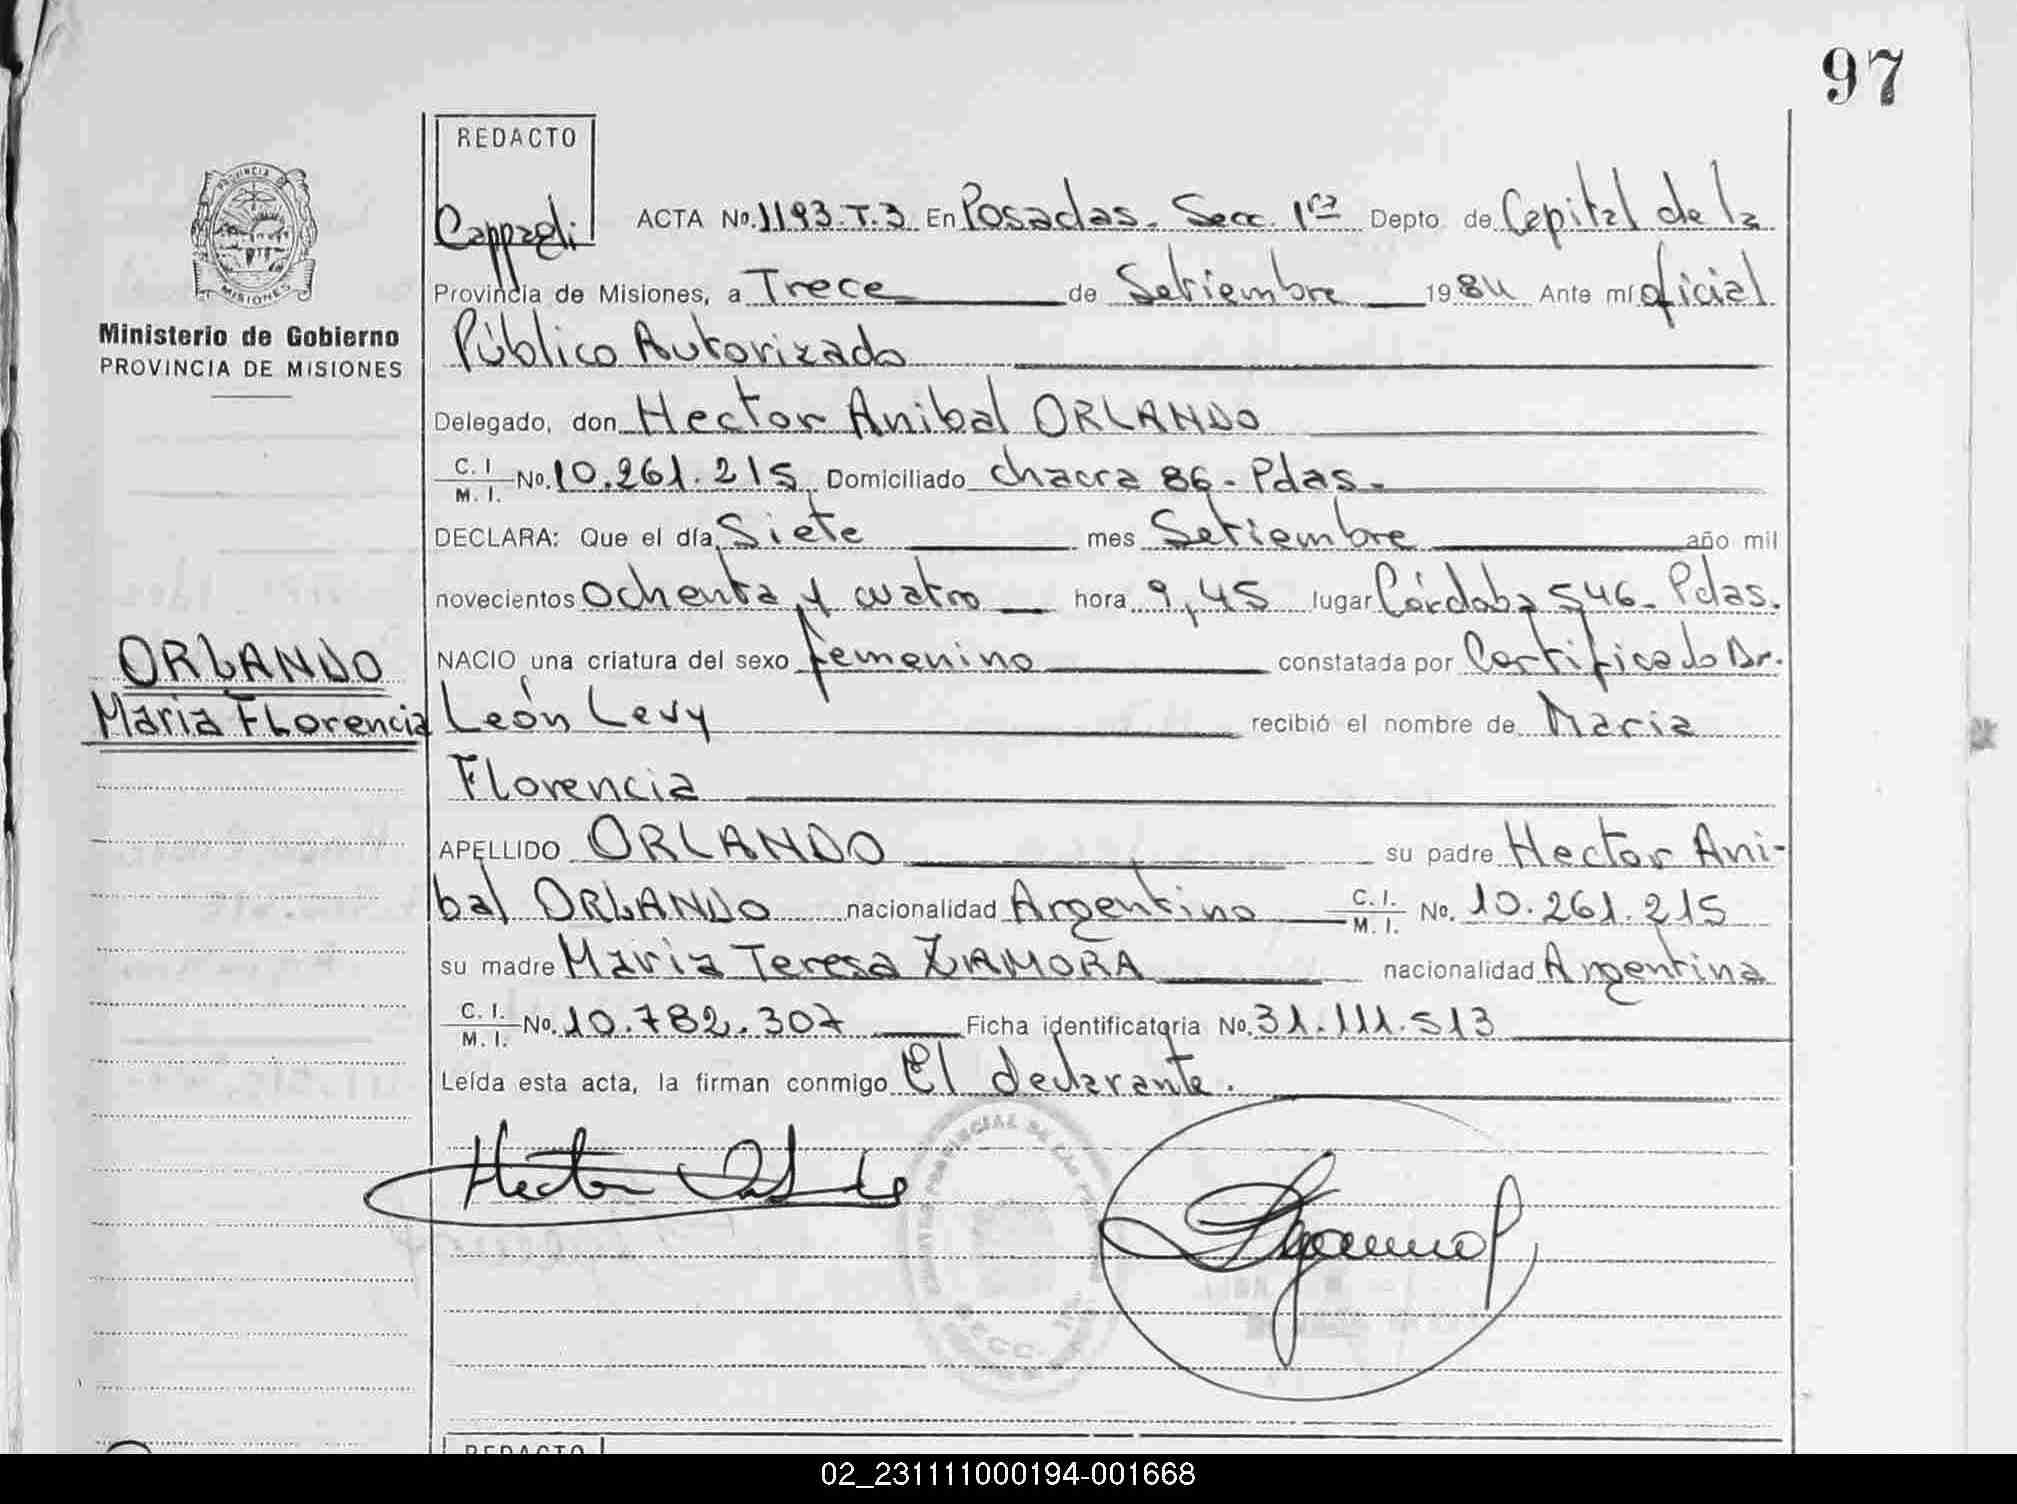 97
REDACTO
Cappagli
PROVINCIA DE
MISIONES
Ministerio de Gobierno
PROVINCIA DE MISIONES
ORLANDO
Maria Florencia
ACTA No. 1193-T.3 En Posadas- Secc. 1ra Depto. de Capital de la
Provincia de Misiones, a Trece de Setiembre 1984 Ante mí oficial
Público Autorizado
Delegado, don Hector Anibal ORLANDO
C. I. M. I. No. 10.261.215 Domiciliado chacra 86- Pdas-
DECLARA: Que el día Siete mes Setiembre año mil
novecientos ochenta y cuatro hora 9,45 lugar Córdoba 546- Pdas.
NACIO una criatura del sexo femenino constatada por Certificado Dr.
León Levy recibió el nombre de Maria
Florencia
APELLIDO ORLANDO su padre Hector Ani-
bal ORLANDO nacionalidad Argentino C. I. M. I. No. 10.261.215
su madre Maria Teresa ZAMORA nacionalidad Argentina
C. I. M. I. No. 10.782.307 Ficha identificatoria No. 31.111.513
Leída esta acta, la firman conmigo El declarante.
Hector
REDACTO
02_231111000194-001668